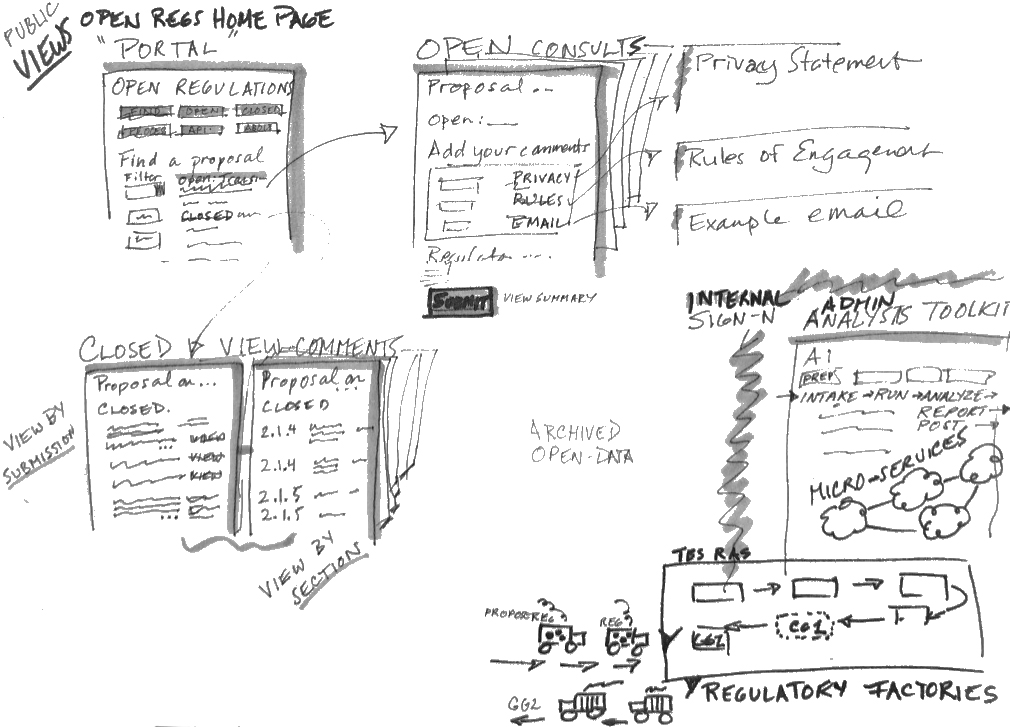 PUBLIC
VIEWS
OPEN REGS HOME PAGE
"PORTAL"
OPEN REGULATIONS
FIND OPEN CLOSED
API ABOUT
Find a proposal
Filter
CLOSED
OPEN CONSULTS
Proposal ..
Open:
Add your comments
PRIVACY
RULES
EMAIL
SUBMIT
VIEW SUMMARY
Privacy Statement
Rules of Engagement
Example email
CLOSED
VIEW COMMENTS
Proposal on...
CLOSED.
...
VIEW
VIEW
VIEW
...
VIEW BY
SUBMISSION
Proposal on
...
CLOSED
2.1.4
2.1.4
2.1.5
2.1.5
VIEW BY
SECTION
ARCHIVED
OPEN-DATA
INTERNAL
SIGN-N
ADMIN
ANALYSTS TOOLKIT
AI
PREP
INTAKE → RUN → ANALYZE →
REPORT →
POST →
MICRO-SERVICES
TBS RAS
CG1
CG2
PROPOSE REG
REG
GG2
REGULATORY FACTORIES